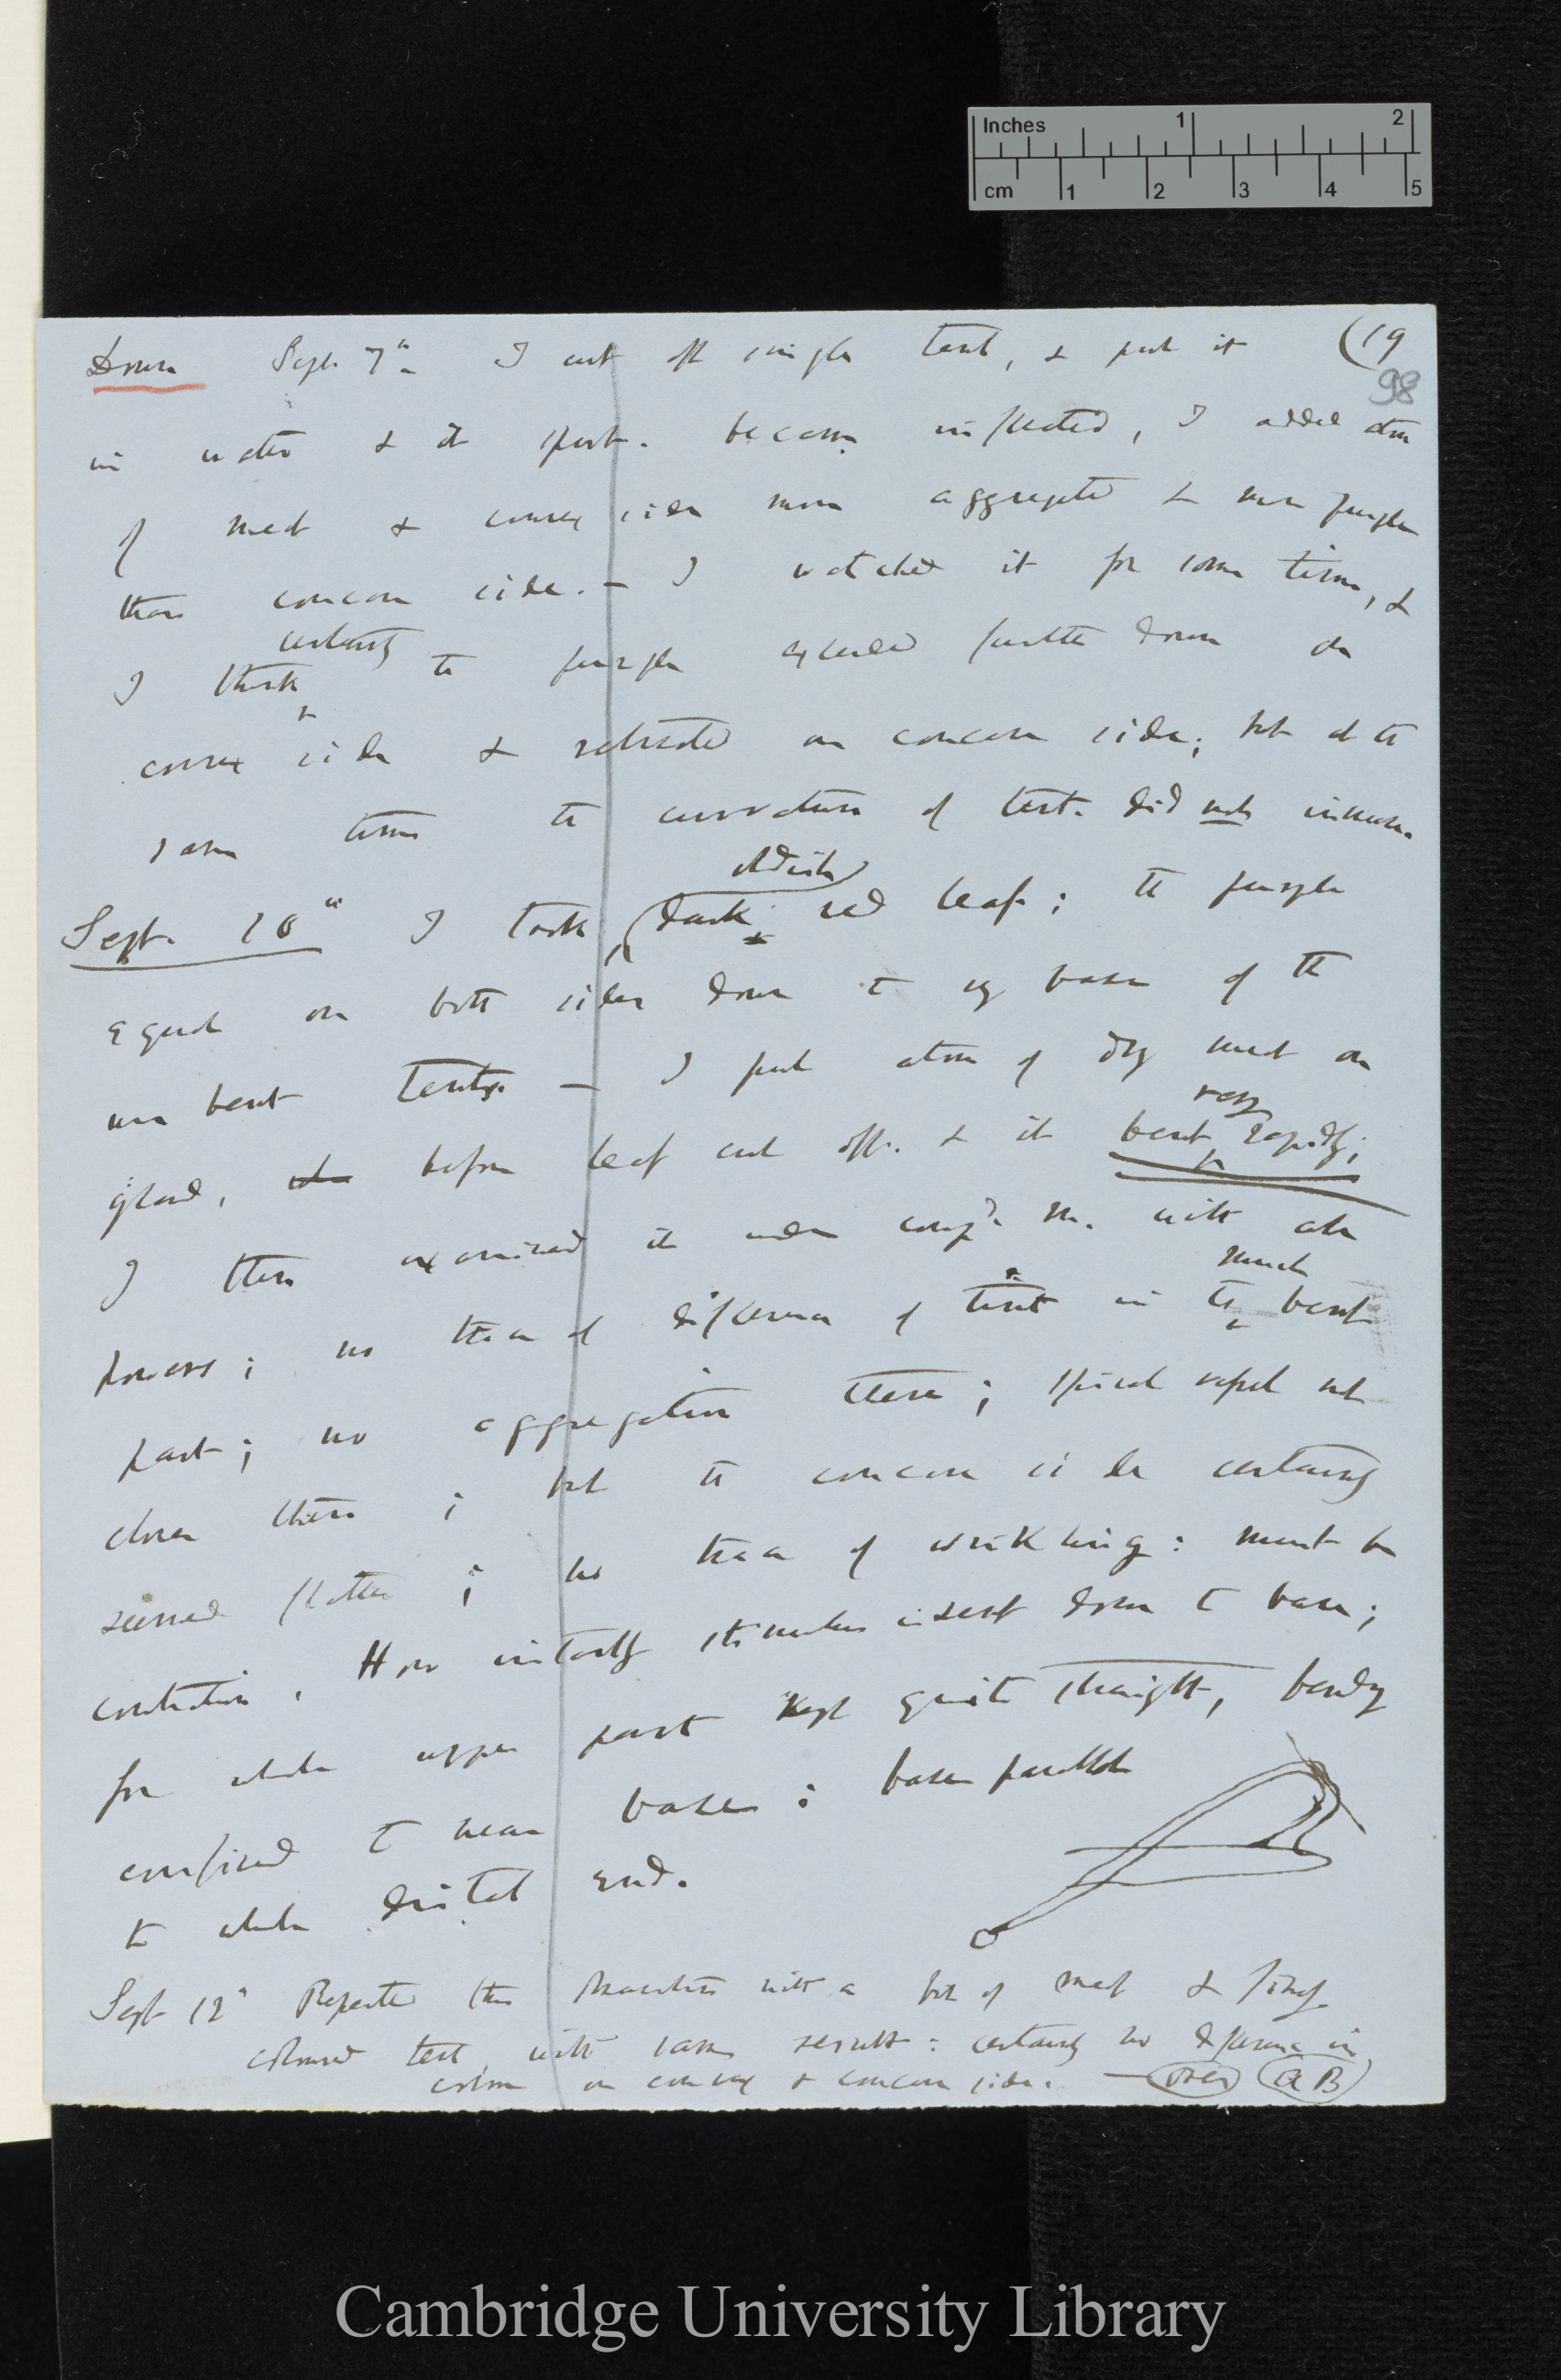 Inches 1 2
cm 1 2 3 4 5
Down Sept. 7th I cut off single tent, & put it (19
98
in water & it spont. became inflected, I added atom
of meat & convex side more aggregated & more purple
than concave side. — I watched it for some time, &
certainly
I think the purple extended further down on
convex side & retreated on concave side; but at the
same time the curvature of tent. did not increase.
oldish
Sept. 10th I took (dark red leaf; the purple
equal on both sides down to base of the
unbent tents. — I put atom of dry meat on
very
gland, before leaf cut off. & it bent rapidly;
I then examined it under compd. M. with all
much
powers; no trace of difference of tint in the bent
part; no aggregation there; spiral vessel not
closer there; but the concave side certainly
seemed flatter; no trace of wrinkling: must be
contraction. How instantly stimulus is sent down to base;
for whole upper part kept quite straight, bending
confined to near base: base parallel
to whole distal end.
Sept 12th Repeated this with a bit of meat &
coloured tent, with same result: certainly no difference in
colour on convex & concave side. — over a B
Cambridge University Library